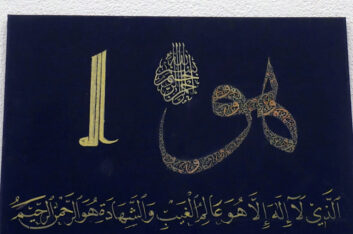 بسم الله الرحمن الرحيم
هو
الَّذِي لَآ إِلٰهَ إِلَّا هُوَ عَالِمُ الْغَيْبِ وَالشَّهَادَةِ هُوَ الرَّحْمٰنُ الرَّحِيمُ